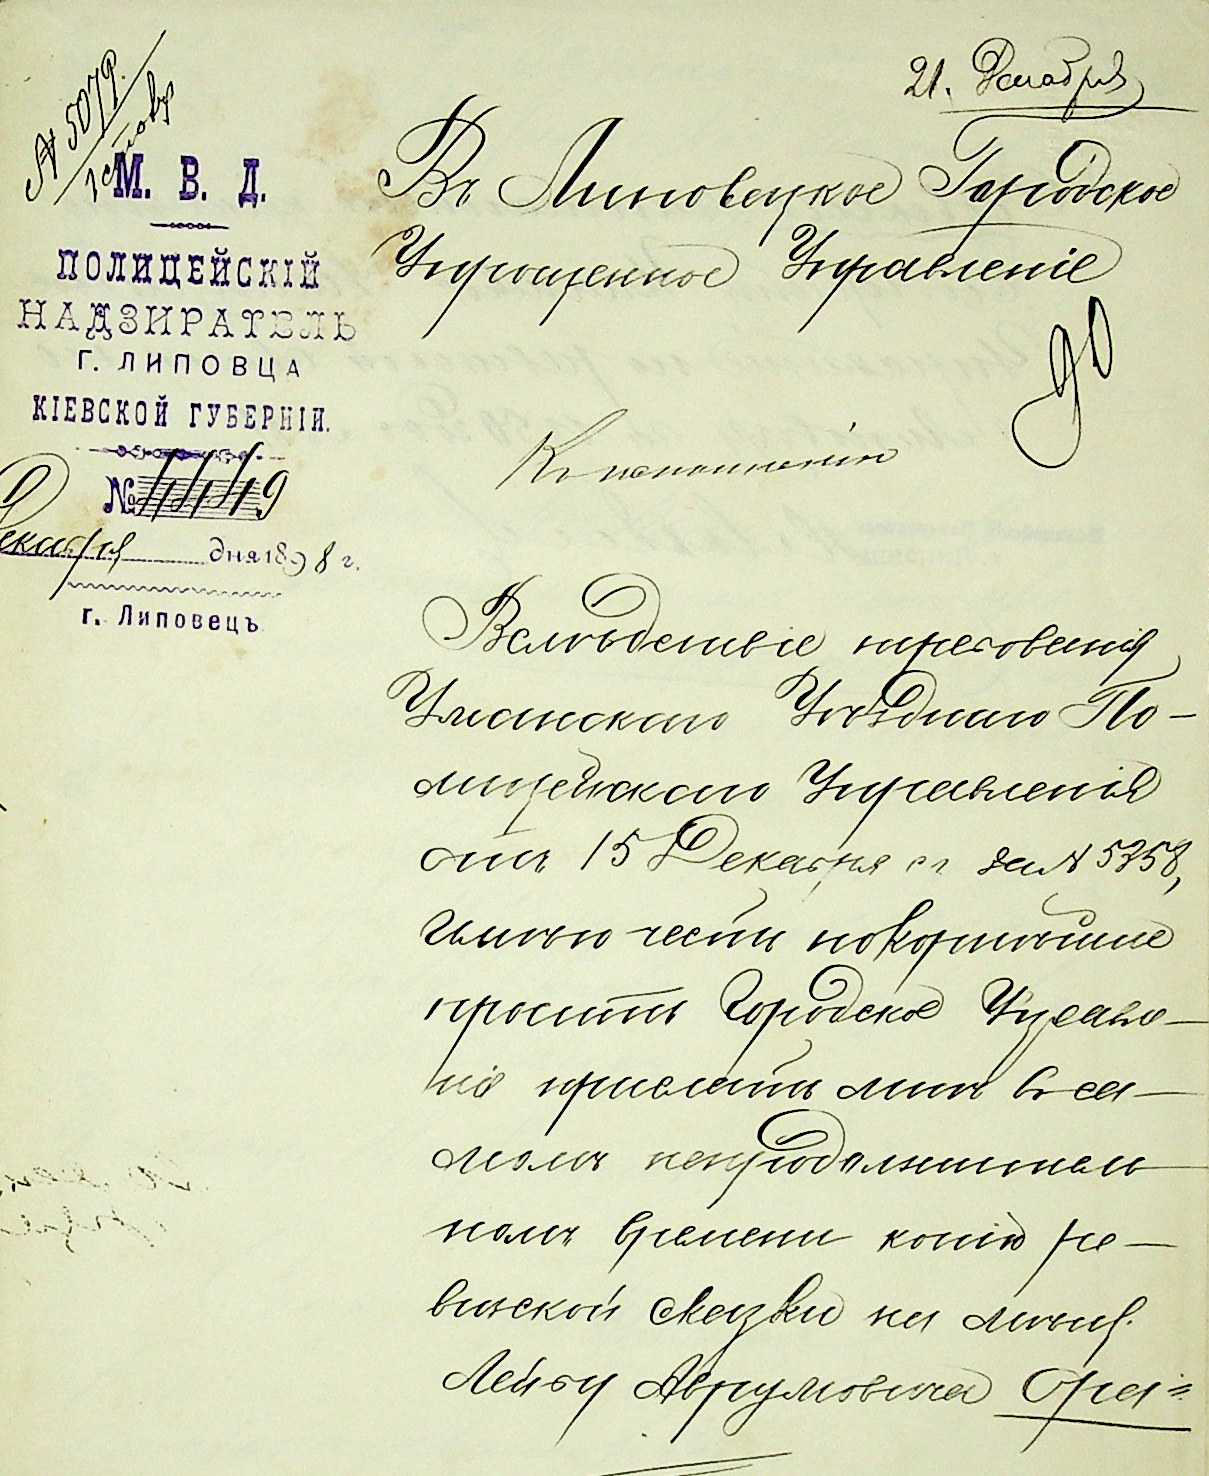 21. Декабря
№ 5079.
М. В. Д.
ПОЛИЦЕЙСКІЙ
НАДЗИРАТЕЛЬ
Г. ЛИПОВЦА
КІЕВСКОЙ ГУБЕРНІИ.
№
Декабря дня 1898 г.
г. Липовецъ
Въ Липовецкое Городское
Упрощенное Управленіе
Къ исполненію
Вслѣдствіе требованія
Уманскаго Уѣзднаго По-
лицейскаго Управленія
отъ 15 Декабря сг за № 5358,
имѣю честь покорнѣйше
просить Городское Управле-
ніе прислать мнѣ въ са-
момъ непродолжитель
номъ времени копію ре-
визской сказки на мѣщ.
Лейбу Аврумовича Сра-